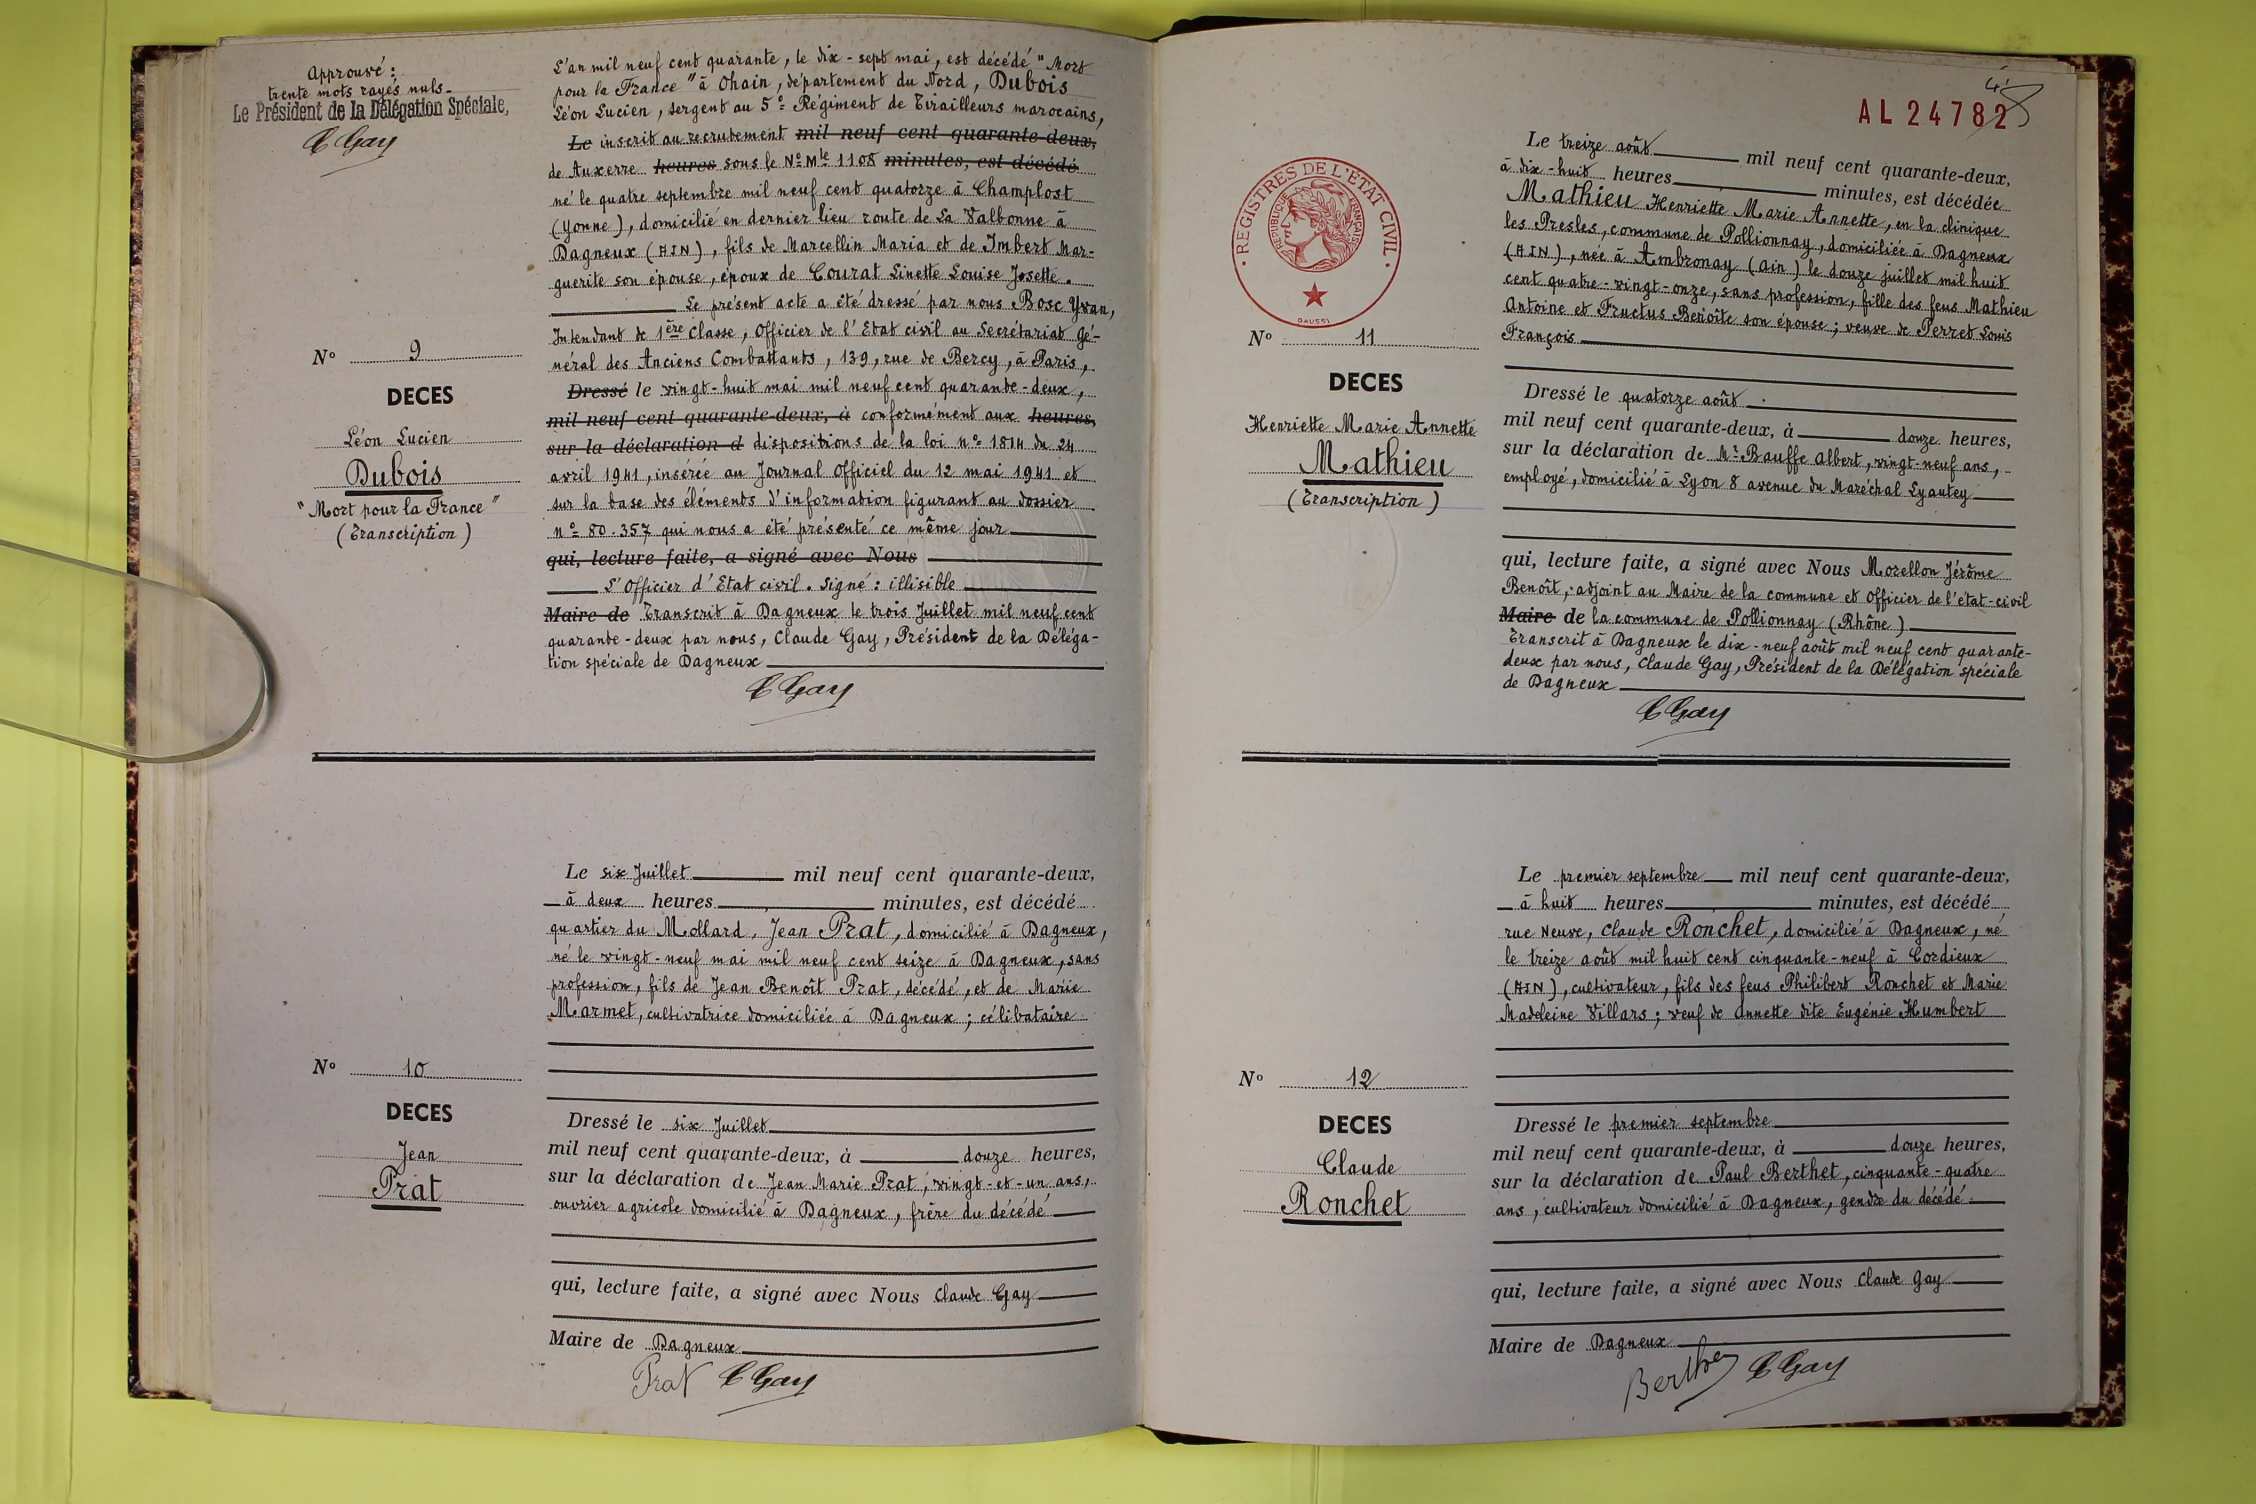 Approuvé :
trente mots rayés nuls.
Le Président de la Délégation Spéciale,
C Gay
L'an mil neuf cent quarante, le dix-sept mai, est décédé "Mort
pour la France" à Ohain, département du Nord, Dubois
Léon Lucien, sergent au 5e Régiment de Tirailleurs marocains,
Le inscrit au recrutement mil neuf cent quarante-deux,
de Auxerre heures sous le No Mle 1108 minutes, est décédé
né le quatre septembre mil neuf cent quatorze à Champlost
(Yonne), domicilié en dernier lieu route de La Valbonne à
Dagneux (AIN), fils de Marcellin Maria et de Imbert Mar-
guerite son épouse, époux de Courat Linette Louise Josette.
Le présent acte a été dressé par nous Bosc Yvan,
Intendant de 1ère Classe, Officier de l'Etat civil au Secrétariat Gé-
néral des Anciens Combattants, 139, rue de Bercy, à Paris,
Dressé le vingt-huit mai mil neuf cent quarante-deux,
mil neuf cent quarante-deux, à conformément aux heures,
sur la déclaration d dispositions de la loi no 1814 du 24
avril 1941, insérée au Journal Officiel du 12 mai 1941 et
sur la base des éléments d'information figurant au dossier
no 80.357 qui nous a été présenté ce même jour
qui, lecture faite, a signé avec Nous
L'Officier d'Etat civil. Signé : illisible
Maire de Transcrit à Dagneux le trois Juillet mil neuf cent
quarante-deux par nous, Claude Gay, Président de la Déléga-
tion spéciale de Dagneux
C Gay
No 9
DECES
Léon Lucien
Dubois
"Mort pour la France"
(Transcription)
Le six Juillet mil neuf cent quarante-deux,
à deux heures minutes, est décédé
quartier du Mollard, Jean Prat, domicilié à Dagneux,
né le vingt-neuf mai mil neuf cent seize à Dagneux, sans
profession, fils de Jean Benoît Prat, décédé, et de Marie
Marmet, cultivatrice domiciliée à Dagneux ; célibataire
No 10
DECES
Jean
Prat
Dressé le six Juillet
mil neuf cent quarante-deux, à douze heures,
sur la déclaration de Jean Marie Prat, vingt-et-un ans,
ouvrier agricole domicilié à Dagneux, frère du décédé
qui, lecture faite, a signé avec Nous Claude Gay
Maire de Dagneux
Prat C Gay
AL 24782
REGISTRES DE L'ETAT CIVIL
REPUBLIQUE FRANÇAISE
DAUSSI
No 11
DECES
Henriette Marie Annette
Mathieu
(Transcription)
Le treize août mil neuf cent quarante-deux,
à dix-huit heures minutes, est décédée
Mathieu Henriette Marie Annette, en la clinique
les Presles, commune de Pollionnay, domiciliée à Dagneux
(AIN), née à Ambronay (Ain) le douze juillet mil huit
cent quatre-vingt-onze, sans profession, fille des feus Mathieu
Antoine et Fructus Benoîte son épouse ; veuve de Perret Louis
François
Dressé le quatorze août
mil neuf cent quarante-deux, à douze heures,
sur la déclaration de Mr Bauffe Albert, vingt-neuf ans,
employé, domicilié à Lyon 8 avenue du Maréchal Lyautey
qui, lecture faite, a signé avec Nous Morellon Jérôme
Benoît, adjoint au Maire de la commune et Officier de l'état-civil
Maire de la commune de Pollionnay (Rhône)
Transcrit à Dagneux le dix-neuf août mil neuf cent quarante-
deux par nous, Claude Gay, Président de la Délégation spéciale
de Dagneux
C Gay
Le premier septembre mil neuf cent quarante-deux,
à huit heures minutes, est décédé
rue Neuve, Claude Ronchet, domicilié à Dagneux, né
le treize août mil huit cent cinquante-neuf à Cordieux
(AIN), cultivateur, fils des feus Philibert Ronchet et Marie
Madeleine Villars ; veuf de Annette dite Eugénie Humbert
No 12
DECES
Claude
Ronchet
Dressé le premier septembre
mil neuf cent quarante-deux, à douze heures,
sur la déclaration de Paul Berthet, cinquante-quatre
ans, cultivateur domicilié à Dagneux, gendre du décédé
qui, lecture faite, a signé avec Nous Claude Gay
Maire de Dagneux
Berthet C Gay